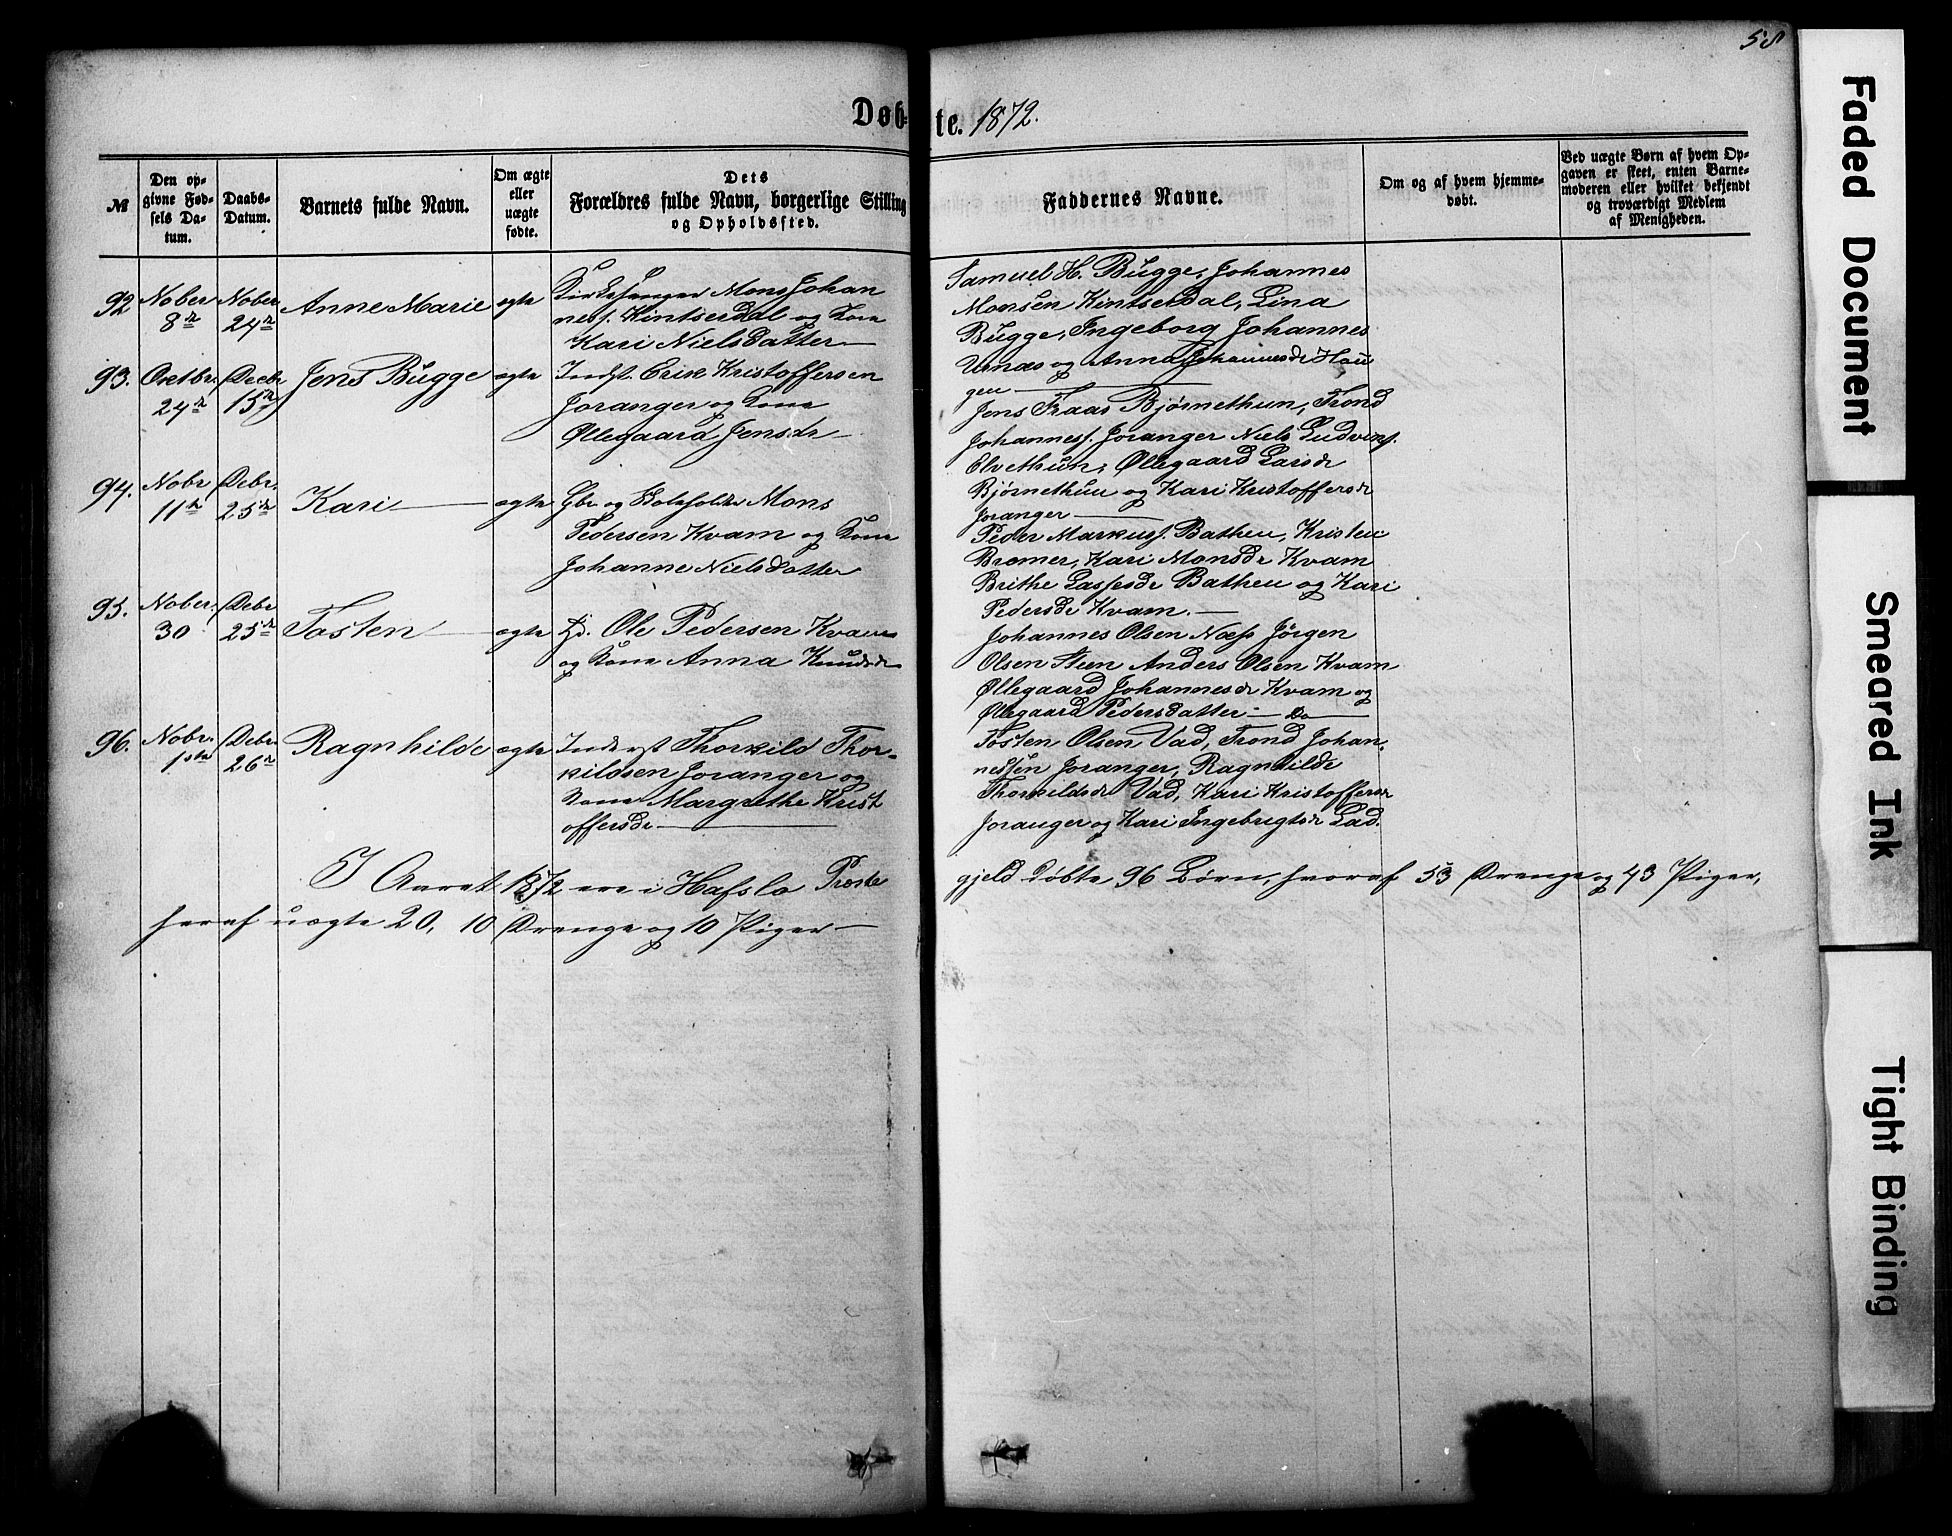 58
Døb-te. 1872.
№
Den op-
givne Fød-
sels Da-
tum.
Daabs-
Datum.
Barnets fulde Navn.
Om ægte
eller
uægte
fødte.
Dets
Forældres fulde Navn, borgerlige Stilling
og Opholdssted.
Faddernes Navne.
Om og af hvem hjemme-
døbt.
Ved uægte Børn af hvem Op-
gaven er skeet, enten Barne-
moderen eller hvilket bekjendt
og troværdigt Medlem
af Menigheden.
92 Nober 8de Nober 24de Anne Marie ægte
Kirkesanger Mons Johan
ness. Kintserdal og Kone
Kari Nielsdatter
Samuel H. Bugge, Johannes
Monsen Kintserdal, Lina
Bugge, Ingeborg Johannes
Urnæs og Anna Johannesdr Hau
gen
93. Octbr. 24de Decbr 15de Jens Bugge ægte
Indst. Erik Kristoffersen
Joranger og Kone
Øllegaard Jensdr
Jens Traas Bjørnethun, Trond
Johanness. Joranger Niels Ludvigs.
Elvethun, Øllegaard Larsdr
Bjørnethun og Kari Kristoffersdr
Joranger
94. Nobr 11te Debr. 25de Kari ægte
Gbr og Skoleholder Mons
Pedersen Kvam og Kone
Johanne Nielsdatter
Peder Markuss. Batheu, Kristen
Bremer, Kari Monsdr Kvam
Brithe Lassesdr Batheu og Kari
Pedersdr Kvam.
95. Nober. 30 Debr 25de Tosten ægte
Hd. Ole Pedersen Kvam
og Kone Anna Knudsdr
Johannes Olsen Næss Jörgen
Olsen Steen Anders Olsen Kvam
Øllegaard Johannesdr Kvam og
Øllegaard Pedersdatter — Do
96. Nobr. 1ste Debr. 26de Ragnhilde ægte
Inderst Thorkild Thor-
kildsen Joranger og
Kone Margrethe Krist
offersdr
Tosten Olsen Vad, Trond Johan-
nessen Joranger, Ragnhilde
Thorkildsdr Vad, Kari Kristoffersdr
Joranger og Kari Ingebrigtsdr Lad.
I Aaret 1872 ere i Hafslo Præste
gjeld døbte 96 Børn, hvoraf 53 Drenge og 43 Piger,
heraf uægte 20, 10 Drenge og 10 Piger
Faded Document
Smeared Ink
Tight Binding